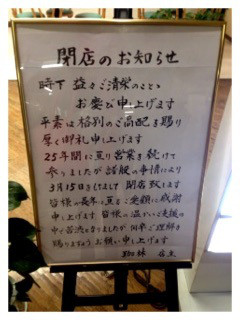 閉店のお知らせ
時下 益々ご清栄のことと
お慶び申し上げます
平素は格別のご高配を賜り
厚く御礼申します
25年間に亘り営業を続けて
参りましたが諸般の事情により
3月15日をもちまして閉店致します
皆様の長年に亘るご愛顧に感謝
申し上げます 皆様の温かいご支援の
中 ありましたが 何卒ご理解を
賜りますようお願い申し上げます
店主